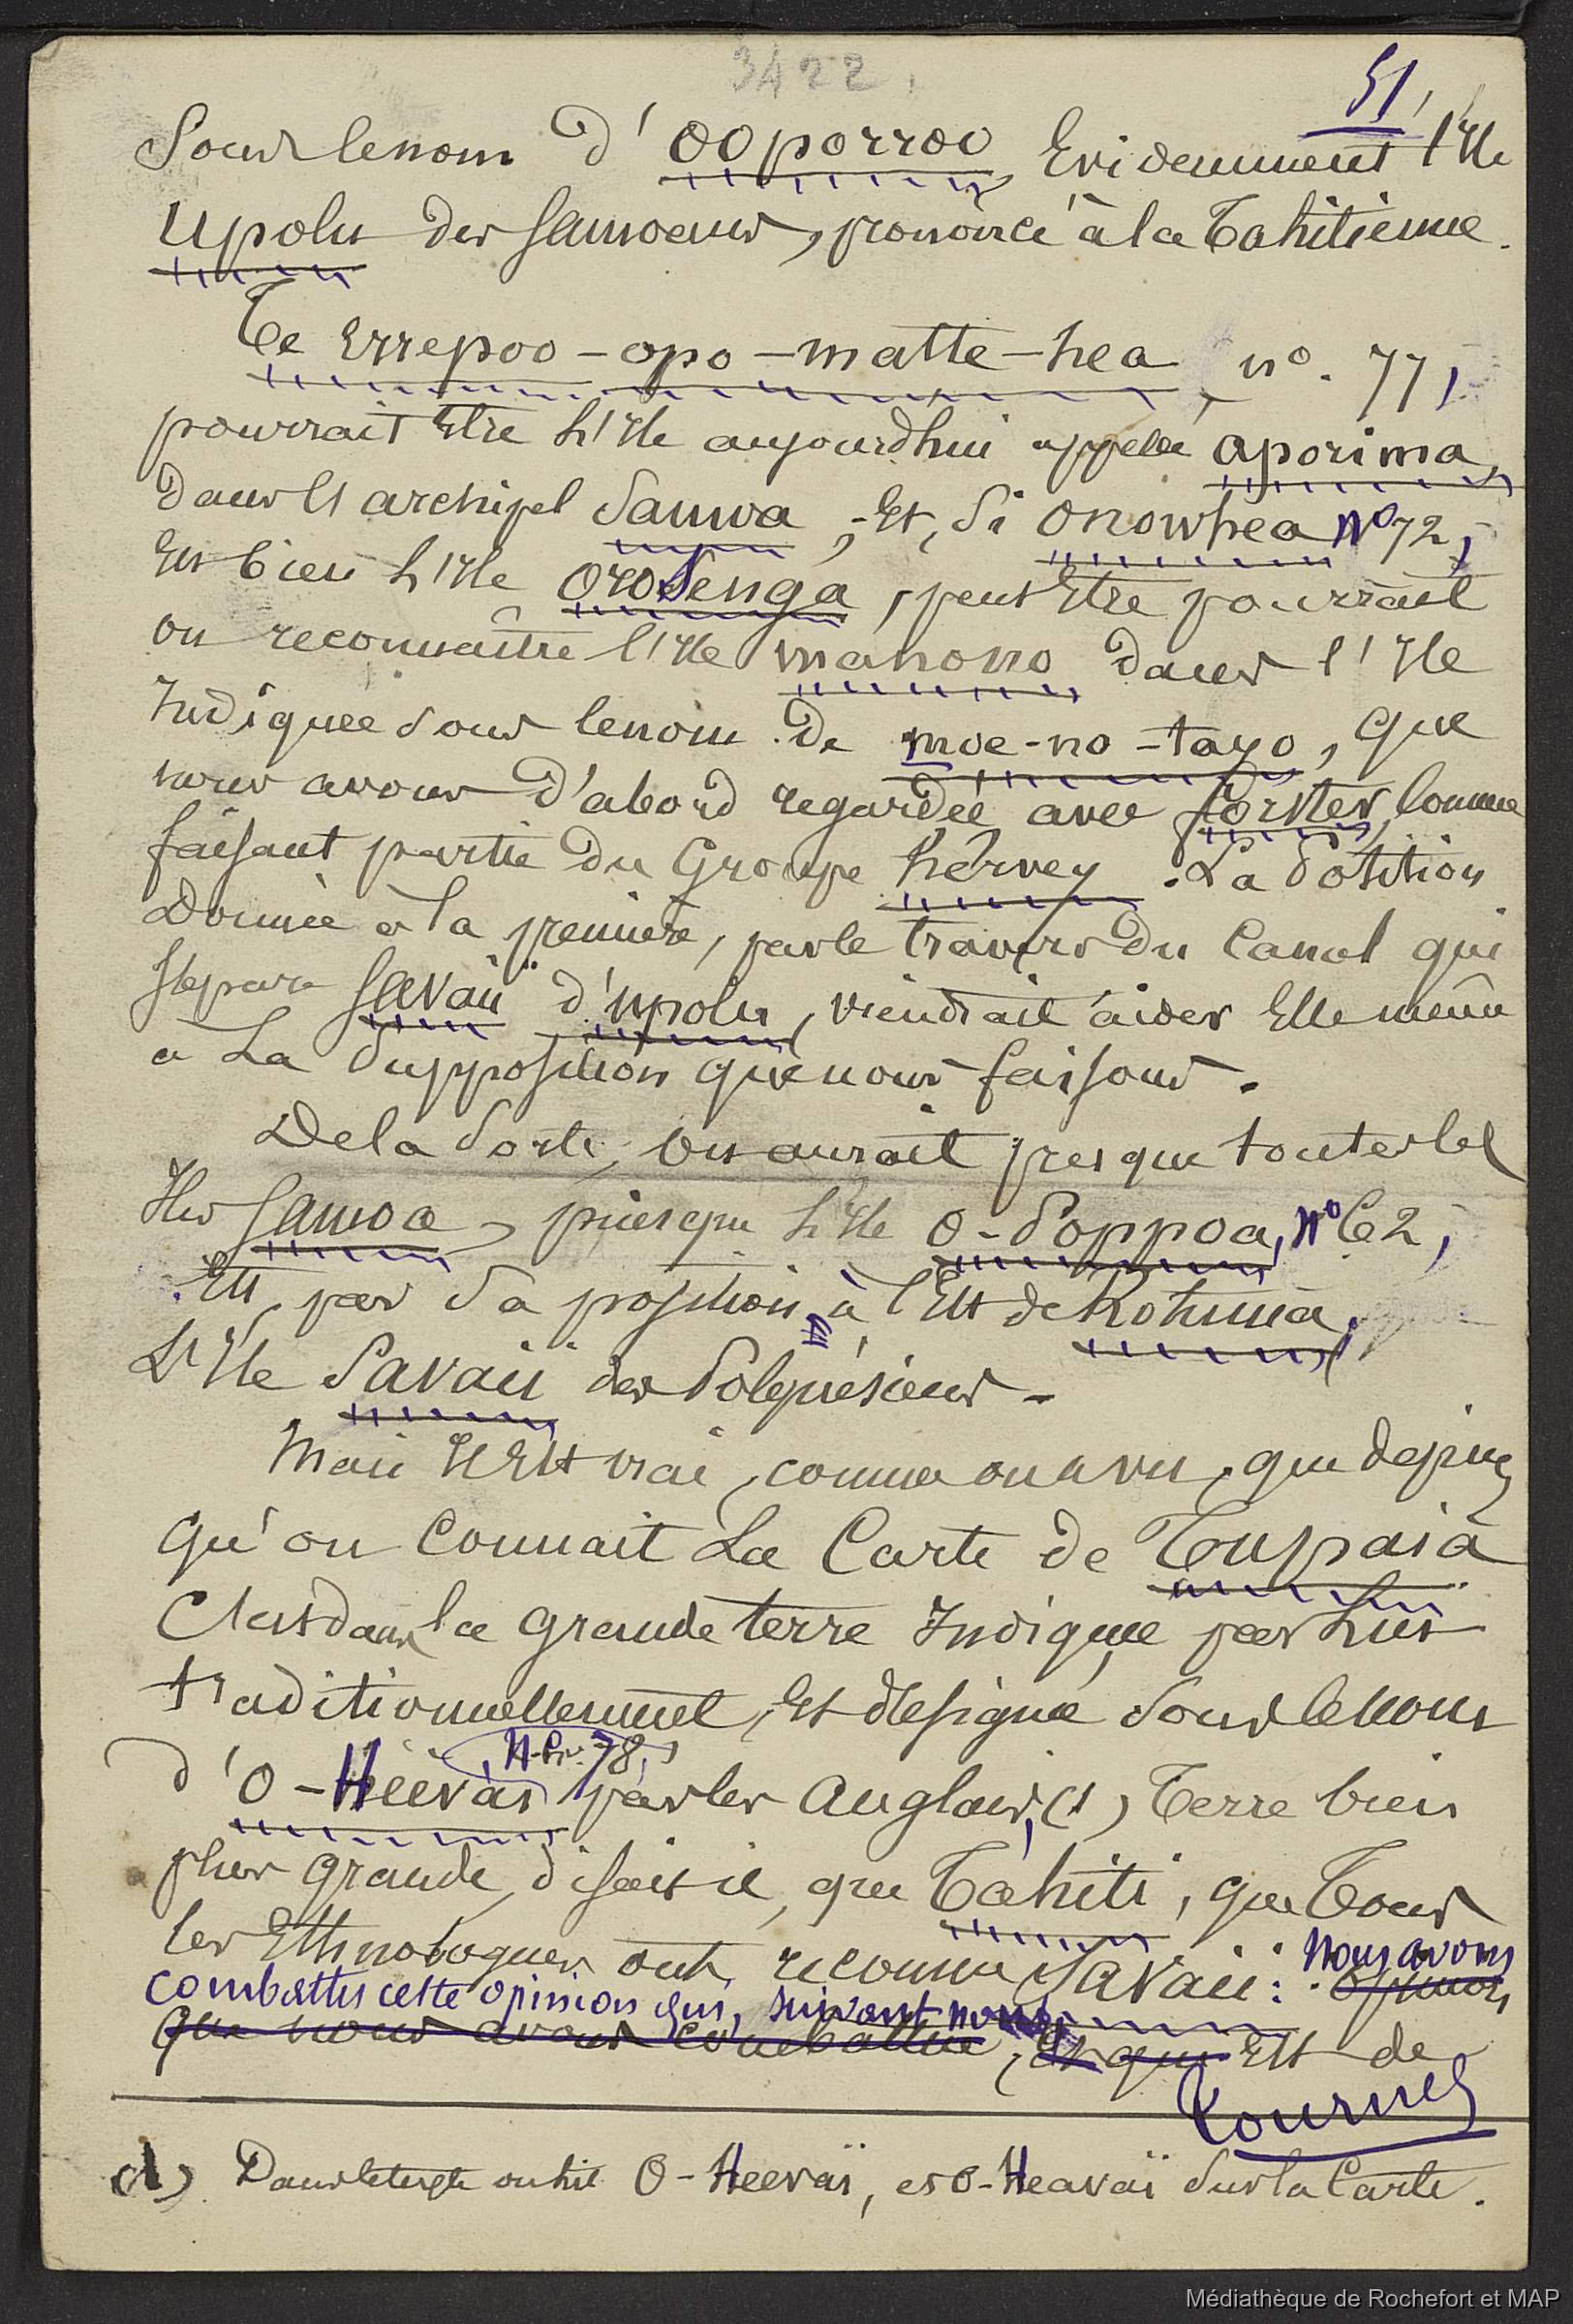 3422,
51,
Sous le nom d'Ooporroo, Evidemment l'Ile
Upolu des Samoans, prononcé à la Tahitienne.
Te Errepoo-opo-matte-hea, no. 77,
pourrait Etre L'Ile aujourdhui appelée aporima,
dans l'archipel Samoa, Et, Si Onowhea No 72,
Est bien L'Ile Orosenga, peut Etre pourrait
on reconnaître l'Ile manono dans l'Ile
Indiquée Sous le nom de moe-no-tayo, que
nous avons d'abord regardée avec forster, Comme
faisant partie du Groupe hervey. La Position
Donnée à la première, par le travers du Canal qui
Separe Savaii d'upolu, viendrait aider Elle même
a La Supposition que nous faisons.
De la Sorte, on aurait presque toutes les
Iles Samoa, puisque L'Ile O-Soppoa, No 62,
Est, par Sa position à l'Est de Rotuma,
L'Ile Savaii des Polynésiens.
Mais Il Est vrai, comme on a vu, que depuis
qu'on Connait La Carte de Tupaia
C'est dans la grande terre Indiquée par Lui
traditionnellement, Et désignée Sous le nom
No 78,
d'O-Heevai par les Anglais, (1) Terre bien
plus grande, disait il, que Tahiti, que Tous
les Ethnologues ont reconnu Savaii: Nous avons
opinion
combattu cette opinion qui, suivant nous
que nous avons combattue, Et qui Est de
Tournes
(1) Dans le texte on lit O-Heevaï, et O-Heavaï Sur la Carte.
Médiathèque de Rochefort et MAP